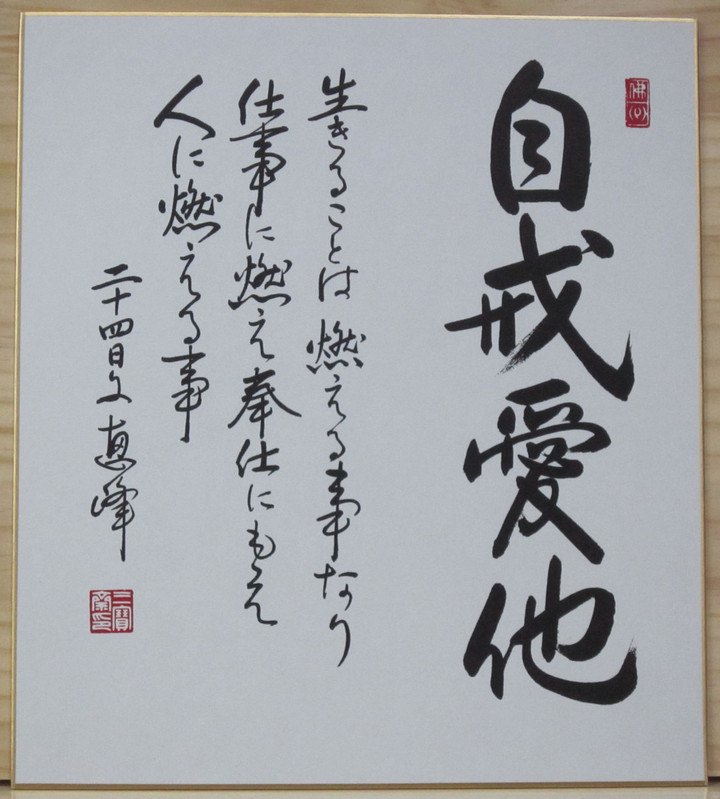 自戒愛他
生きることは燃える事なり
仕事に燃え奉仕にもえ
人に燃える事
二十四日文恵峰
三寶
齋印